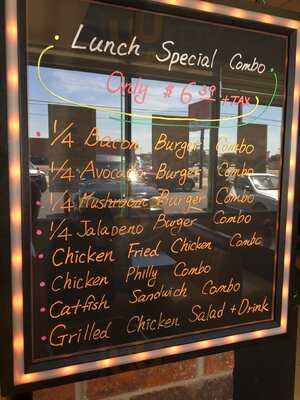 Lunch Special Combo
Only $6.59 + TAX
1/4 Bacon Burger Combo
1/4 Avocado Burger Combo
1/4 Mushroom Burger Combo
1/4 Jalapeno Burger Combo
Chicken Fried Chicken Combo
Chicken Philly Combo
Catfish Sandwich Combo
Grilled Chicken Salad + Drink